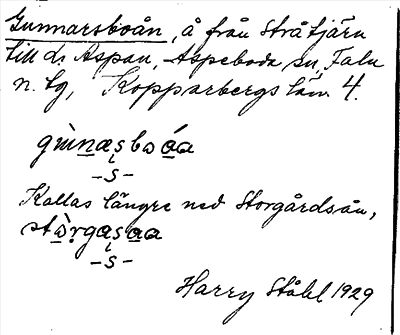 Gunnarsboån, å från Stråtjärn
till d:r Aspan, Aspeboda sn, Falu
n. tg, Kopparbergs län. 4.
gùnæs̩bωa̲a
–s–
Kallas längre ned Storgårdsån,
stὼr̩gas̩a̲a
–s–
Harry Ståhl 1929